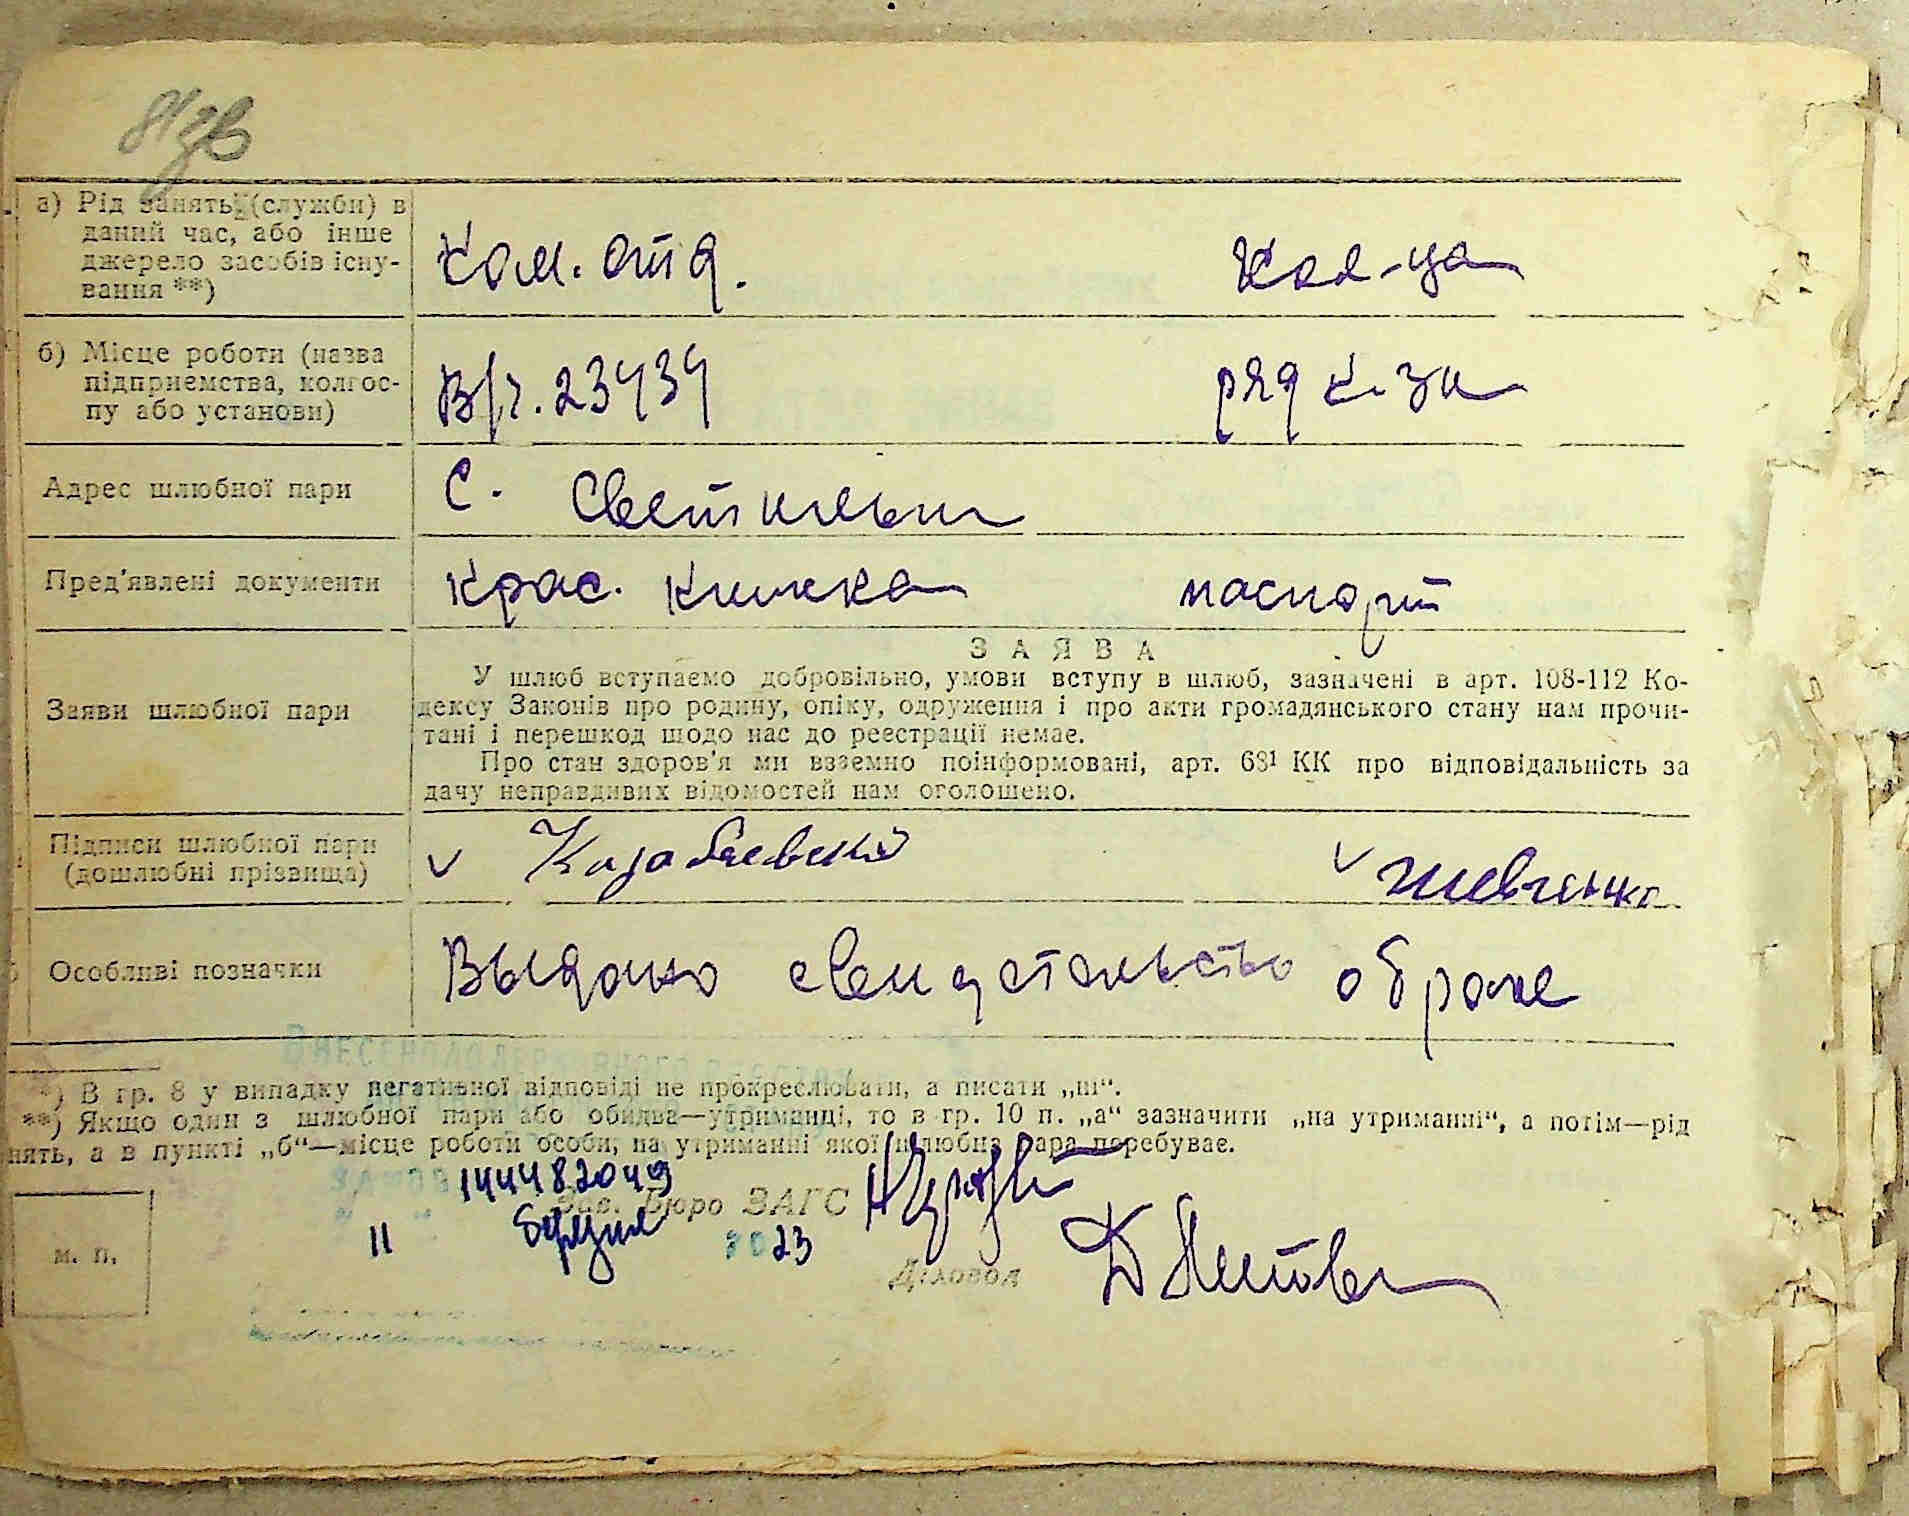 81зв
а) Рід занять (служби) в
даний час, або інше
джерело засобів існу-
вання **)
Ком. отд.
Кол-ца
б) Місце роботи (назва
підприемства, колгос-
пу або установи)
В/ч. 23434
ряд к-зи
Адрес шлюбної пари
с. Светильня
Пред'явлені документи
крас. книжка
паспорт
Заяви шлюбної пари
ЗАЯВА
У шлюб вступаємо добровільно, умови вступу в шлюб, зазначені в арт. 108-112 Ко-
дексу Законів про родину, опіку, одруження і про акти громадянського стану нам прочи-
тані і перешкод щодо нас до реєстрації немає.
Про стан здоров'я ми взаємно поінформовані, арт. 68¹ КК про відповідальність за
дачу неправдивих відомостей нам оголошено.
Підписи шлюбної пари
(дошлюбні прізвища)
Шевченко
Особливі позначки
Выдано свидетельство о браке
*) В гр. 8 у випадку негативної відповіді не прокреслювати, а писати „ні“.
**) Якщо один з шлюбної пари або обидва—утриманці, то в гр. 10 п. „а“ зазначити „на утриманні“, а потім—рід
нять, а в пункті „б“—місце роботи особи, на утриманні якої шлюбна пара перебуває.
14448 2049
Зав. Бюро ЗАГС
11 березня 2023
м. п.
Діловод